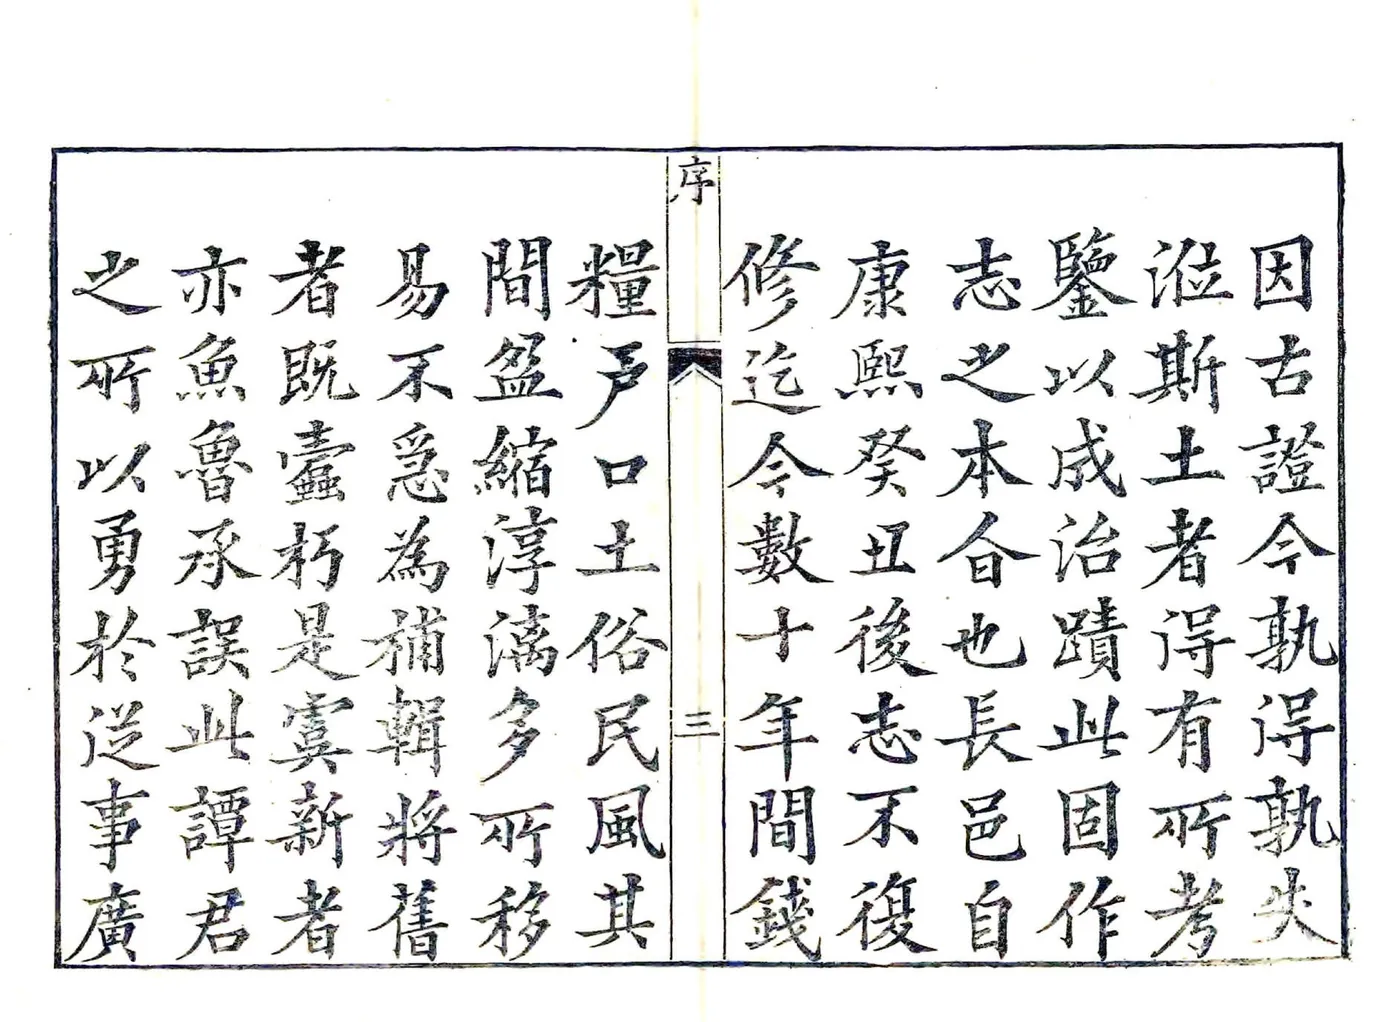 因古證今孰得孰失
涖斯土者得有所考
鑒以成治蹟此固作
志之本旨也長邑自
康熙癸丑後志不復
修迄今數十年間錢
序
三
糧戶口土俗民風其
間盈縮淳漓多所移
易不急為補輯將舊
者既蠹朽是虞新者
亦魚魯承誤此譚君
之所以勇於從事廣